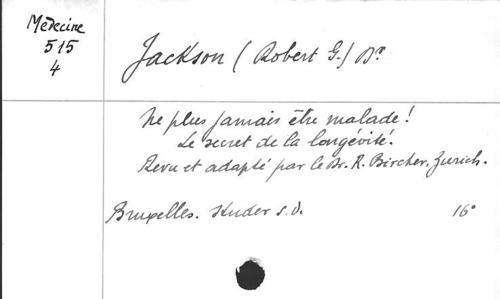 Médecine
515
4
Jackson (Robert G.) Dr
Ne plus jamais être malade!
Le secret de la longévité.
Revu et adapté par le Dr. R. Bircher, Zurich.
Bruxelles. Kuder s.d.
16°